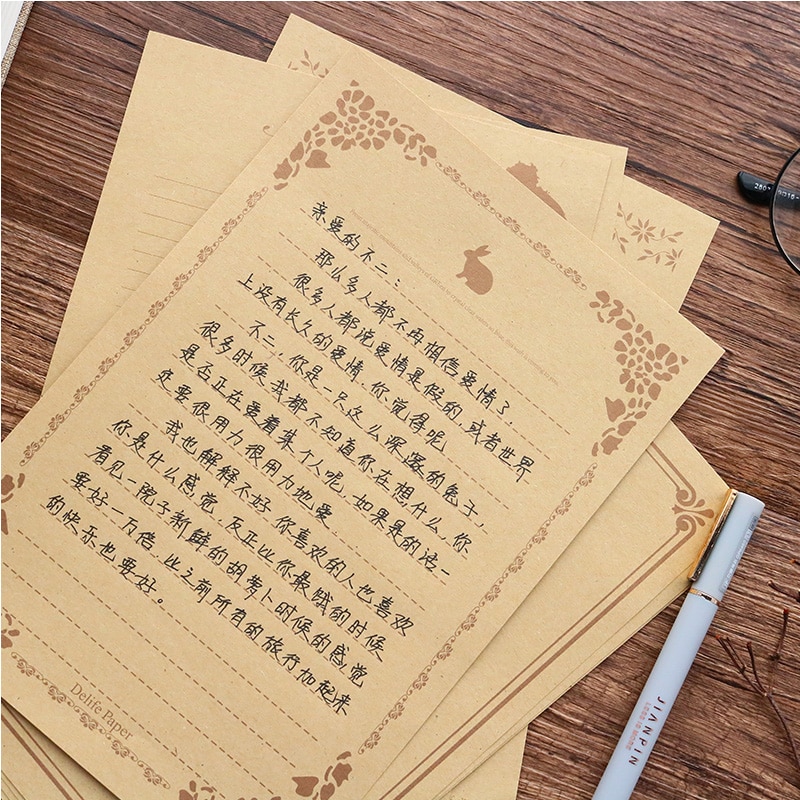 亲爱的不二：
那么多人都不再相信爱情了.
很多人都说爱情是假的,或者世界
上没有长久的爱情.你觉得呢
不二,你是一只这么深邃的兔子,
很多时候我都不知道你在想什么,你
是否正在爱着某个人呢,如果是的话一
定要很用力很用力地爱.
我也解释不好 你喜欢的人也喜欢
你是什么感觉,反正比你最饿的时候
看见一院子新鲜的胡萝卜时候的感觉
要好一万倍,比之前所有的旅行加起来
的快乐也要好。
Delife Paper
JIANPIN